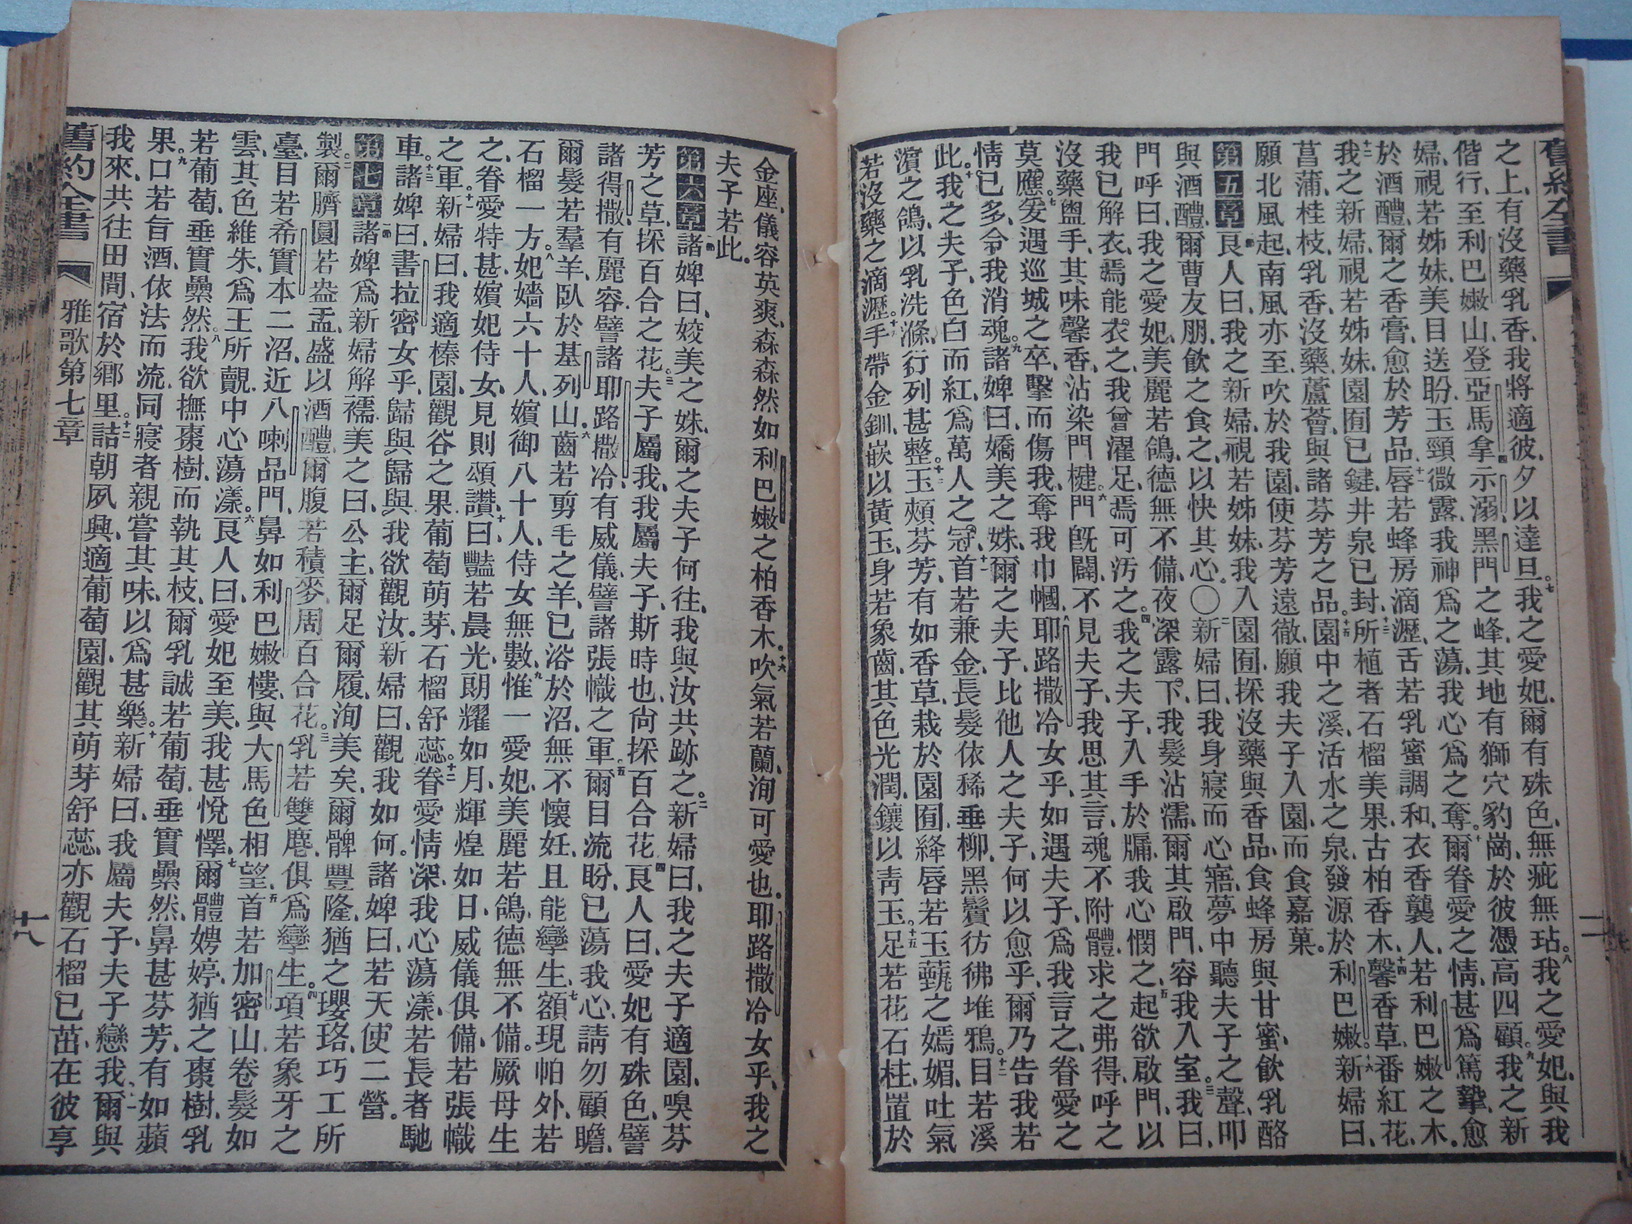 舊約全書
之上有沒藥乳香、我將適彼、夕以達旦。七我之愛妃、爾有姝色、無疵無玷。八我之愛妃、與我
偕行、至利巴嫩山、登亞馬拿示溺、黑門之峰、其地有獅穴豹崗、於彼憑高四顧。九我之新
婦、視若姊妹、美目送盼、玉頸微露、我神爲之蕩、我心爲之奪。十爾眷愛之情、甚爲篤摯、愈
於酒醴、爾之香膏、愈於芳品。十一唇若蜂房滴瀝、舌若乳蜜調和、衣香襲人、若利巴嫩之木。
十二我之新婦、視若姊妹、園囿已鍵、井泉已封。十三所植者石榴美果、古柏香木、十四馨香草、番紅花、
菖蒲、桂枝、乳香、沒藥、蘆薈、與諸芬芳之品。十五園中之溪、活水之泉、發源於利巴嫩。十六新婦曰、
願北風起、南風亦至、吹於我園、使芬芳遠徹、願我夫子入園、而食嘉菓。
第五章 一良人曰、我之新婦、視若姊妹、我入園囿、採沒藥與香品、食蜂房與甘蜜、飲乳酪
與酒醴、爾曹友朋、飲之食之、以快其心。〇二新婦曰、我身寢而心寤、夢中聽夫子之聲、叩
門呼曰、我之愛妃、美麗若鴿、德無不備、夜深露下、我髮沾濡、爾其啟門、容我入室。三我曰、
我已解衣、焉能衣之、我曾濯足、焉可汚之。四我之夫子、入手於牖、我心憫之。五起欲啟門、以
沒藥盥手、其味馨香、沾染門楗。六門旣闢、不見夫子、我思其言、魂不附體、求之弗得、呼之
莫應。七爰遇巡城之卒、擊而傷我、奪我巾幗、八耶路撒冷女乎、如遇夫子、爲我言之、眷愛之
情、已多、令我消魂。九諸婢曰、嬌美之姝、爾之夫子、比他人之夫子、何以愈乎、爾乃告我若
此。十我之夫子、色白而紅、爲萬人之冠、十一首若兼金、長髮依稀垂柳、黑鬢彷彿堆鴉。十二目若溪
濱之鴿、以乳洗滌、行列甚整。十三玉頰芬芳、有如香草、栽於園囿、絳唇若玉蕤之嫣媚、吐氣
若沒藥之滴瀝。十四手帶金釧、嵌以黃玉、身若象齒、其色光潤、鑲以靑玉。十五足若花石柱、置於
金座、儀容英爽、森森然如利巴嫩之柏香木。十六吹氣若蘭、洵可愛也。耶路撒冷女乎、我之
夫子若此。
第六章 一諸婢曰、姣美之姝、爾之夫子何往、我與汝共跡之。二新婦曰、我之夫子適園、嗅芬
芳之草、採百合之花。三夫子屬我、我屬夫子、斯時也、尙採百合花。四良人曰、愛妃有姝色、譬
諸得撒、有麗容、譬諸耶路撒冷、有威儀、譬諸張幟之軍。五爾目流盼、已蕩我心、請勿顧瞻、
爾髮若羣羊、臥於基列山、六齒若剪毛之羊、已浴於沼、無不懷妊、且能孿生、七額現帕外、若
石榴一方。八妃嬙六十人、嬪御八十人、侍女無數、九惟一愛妃、美麗若鴿、德無不備。厥母生
之、眷愛特甚、嬪妃侍女、見則頌讚。十曰、豔若晨光、朗耀如月、輝煌如日、威儀俱備、若張幟
之軍。十一新婦曰、我適榛園、觀谷之果、葡萄萌芽、石榴舒蕊。十二眷愛情深、我心蕩漾、若長者馳
車。十三諸婢曰、書拉密女乎、歸與歸與、我欲觀汝、新婦曰、觀我如何。諸婢曰、若天使二營。
第七章 一諸婢爲新婦解襦、美之曰、公主、爾足爾履、洵美矣、爾髀豐隆、猶之瓔珞、巧工所
製。二爾臍圓若盎盂、盛以酒醴、爾腹若積麥、周百合花。三乳若雙麀、俱爲孿生。四項若象牙之
臺、目若希實本二沼、近八喇品門、鼻如利巴嫩樓、與大馬色相望、五首若加密山、卷髮如
雲、其色維朱、爲王所觀、中心蕩漾。六良人曰、愛妃至美、我甚悅懌、七爾體娉婷、猶之棗樹、乳
若葡萄、垂實纍然。八我欲撫棗樹、而執其枝、爾乳誠若葡萄、垂實纍然、鼻甚芬芳、有如蘋
果。九口若旨酒、依法而流、同寢者親嘗其味、以爲甚樂。十新婦曰、我屬夫子、夫子戀我、十一爾與
我來、共往田間、宿於鄉里。十二詰朝夙興、適葡萄園、觀其萌芽舒蕊、亦觀石榴已茁、在彼享
舊約全書 雅歌第七章 十八